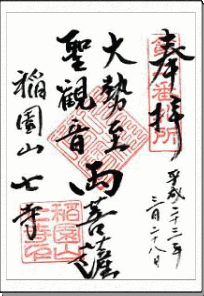 奉拝
平成二十三年
三月二十八日
大勢至
聖観音
両菩薩
稲園山 七寺
稲園山
七寺印